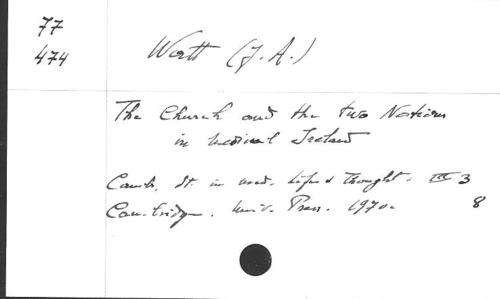 77
474
Watt (J. A.)
The Church and the two Nations
in medieval Ireland
Camb. St. in med. Life & Thought. III 3
Cambridge. Univ. Press. 1970.
8